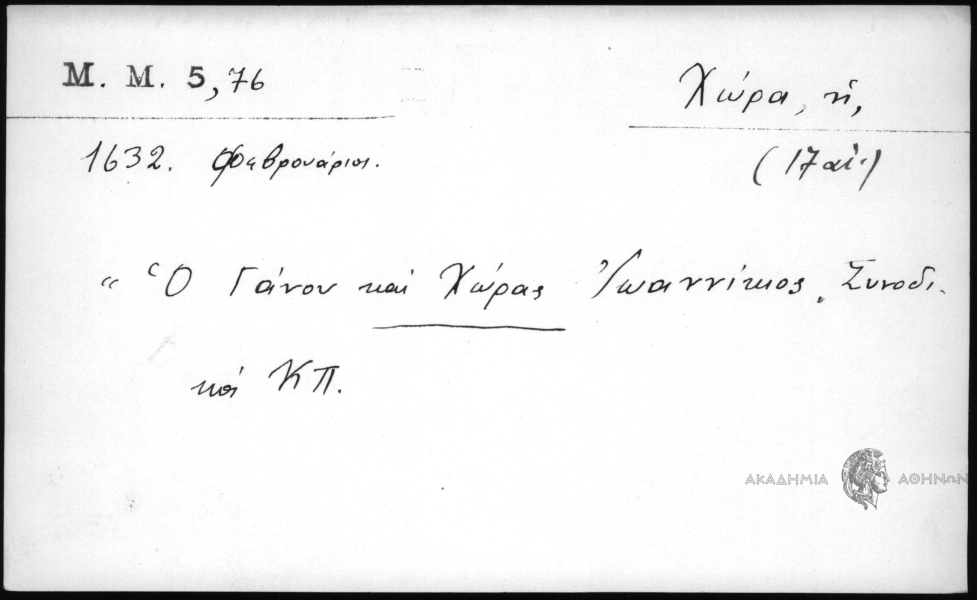 M. M. 5,76
Χώρα, ἡ,
1632. Φεβρουάριος.
(17 αἰ.)
“ Ὁ Γάνου καὶ Χώρας Ἰωαννίκιος „ Συνοδι-
κοί ΚΠ.
ΑΚΑΔΗΜΙΑ ΑΘΗΝΩΝ